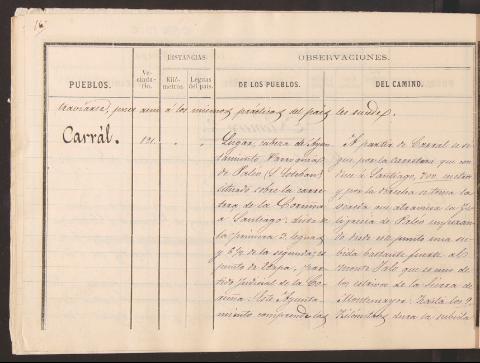 PUEBLOS.
Vecindario.
DISTANCIAS
Kilómetros.
Leguas del país.
OBSERVACIONES.
DE LOS PUEBLOS.
DEL CAMINO.
pues aun á los mismos prácticos del país les sucede.
Carrál.
Lugar, cabeza de Ayuntamiento Parroquia
de Paleo (S. Esteban)
situado sobre la carretera de la Coruña
á Santiago: dista de
la primera 3 leguas
y 6 1/2 de la segunda; es
punto de Etapa, partido judicial de la Coruña. Este Ayuntamiento comprende las
A partir de Carral se sigue por la carretera que conduce á Santiago, 700 metros
y por la derecha se toma la
vereda que atraviesa la Iglesia de Paleo empezando desde este punto una subida bastante fuerte al
monte Xalo que es uno de
los estribos de la Sierra de
Montemayor. Hasta los 2
Kilómetros dura la subida